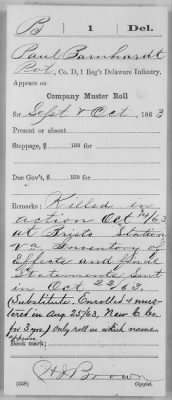 B | 1 | Del.
Paul Barnhardt
Pvt, Co. D, 1 Reg't Delaware Infantry.
Appears on
Company Muster Roll
for Sept & Oct, 1863
Present or absent
Stoppage, $ 100 for
Due Gov't, $ 100 for
Remarks: Killed in
action Oct 14/63
at Bristo Station
Va. Inventory of
Effects and final
Statements sent
in Oct 22/63.
(Substitute. Enrolled & mus-
tered in Aug 25/63, New C. Co.
for 3 yrs) Only roll on which name
appears
Book mark:
Brown
(358) Copyist.